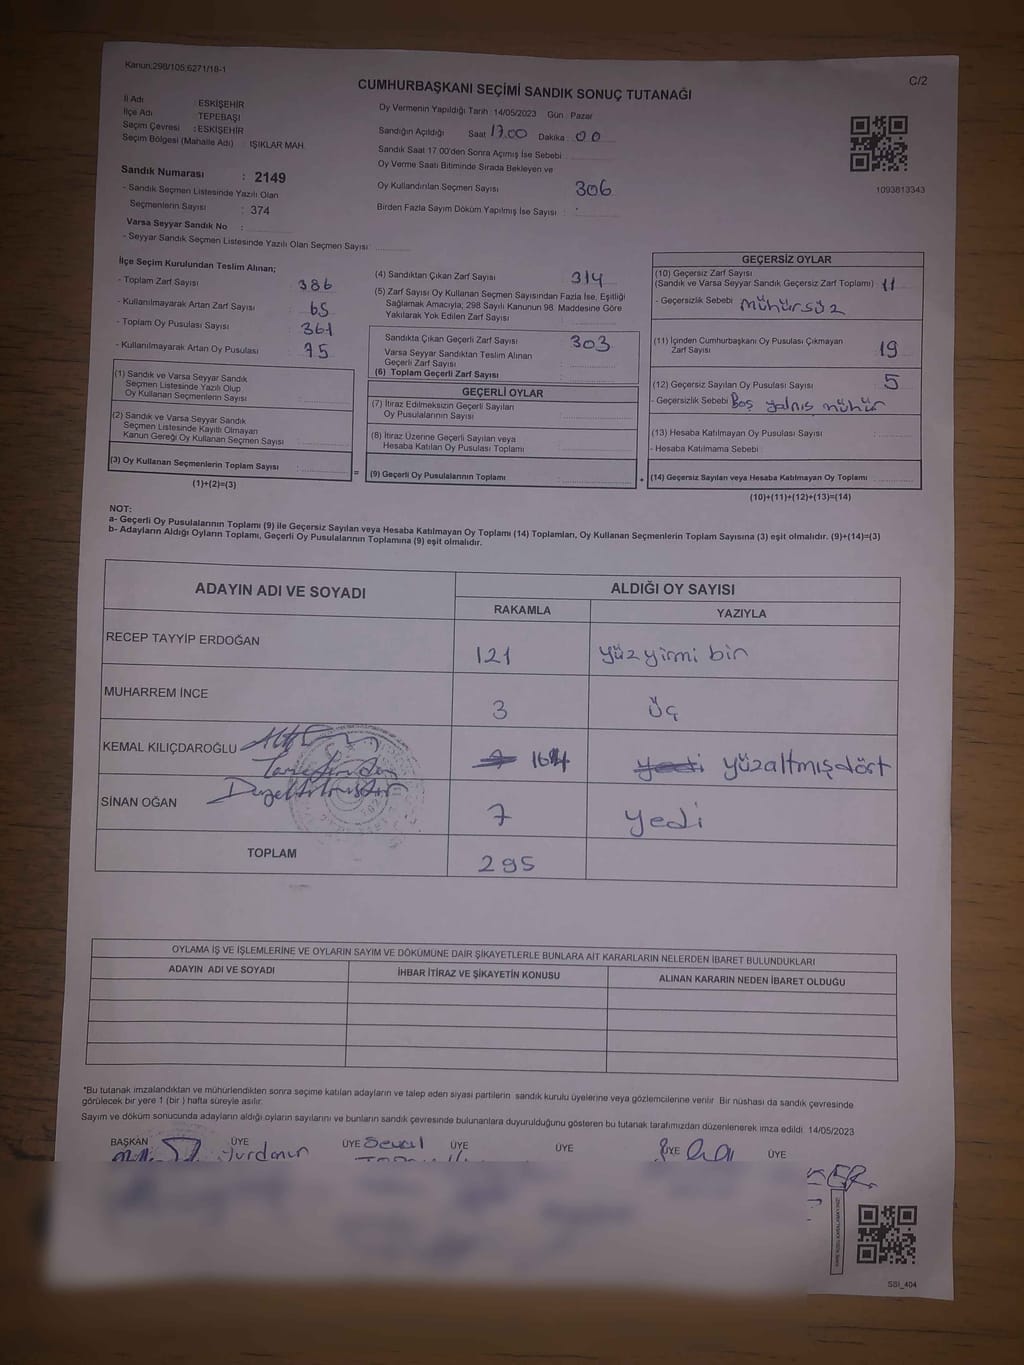 Kanun:298/105;6271/18-1
C/2
CUMHURBAŞKANI SEÇİMİ SANDIK SONUÇ TUTANAĞI
İl Adı : ESKİŞEHİR
İlçe Adı : TEPEBAŞI
Seçim Çevresi : ESKİŞEHİR
Seçim Bölgesi (Mahalle Adı) : IŞIKLAR MAH.
Sandık Numarası : 2149
- Sandık Seçmen Listesinde Yazılı Olan
Seçmenlerin Sayısı : 374
Varsa Seyyar Sandık No :
- Seyyar Sandık Seçmen Listesinde Yazılı Olan Seçmen Sayısı:
Oy Vermenin Yapıldığı Tarih : 14/05/2023 Gün : Pazar
Sandığın Açıldığı Saat 17.00 Dakika : 00
Sandık Saat 17.00'den Sonra Açımış İse Sebebi :
Oy Verme Saati Bitiminde Sırada Bekleyen ve
Oy Kullandırılan Seçmen Sayısı 306
Birden Fazla Sayım Döküm Yapılmış İse Sayısı :
1093813343
İlçe Seçim Kurulundan Teslim Alınan;
- Toplam Zarf Sayısı 386
- Kullanılmayarak Artan Zarf Sayısı : 65
- Toplam Oy Pusulası Sayısı : 361
- Kullanılmayarak Artan Oy Pusulası : 75
(1) Sandık ve Varsa Seyyar Sandık
Seçmen Listesinde Yazılı Olup
Oy Kullanan Seçmenlerin Sayısı :
(2) Sandık ve Varsa Seyyar Sandık
Seçmen Listesinde Kayıtlı Olmayan
Kanun Gereği Oy Kullanan Seçmen Sayısı :
(3) Oy Kullanan Seçmenlerin Toplam Sayısı :
(1)+(2)=(3)
(4) Sandıktan Çıkan Zarf Sayısı 314
(5) Zarf Sayısı Oy Kullanan Seçmen Sayısından Fazla İse, Eşitliği
Sağlamak Amacıyla; 298 Sayılı Kanunun 98. Maddesine Göre
Yakılarak Yok Edilen Zarf Sayısı :
Sandıkta Çıkan Geçerli Zarf Sayısı 303
Varsa Seyyar Sandıktan Teslim Alınan
Geçerli Zarf Sayısı :
(6) Toplam Geçerli Zarf Sayısı :
GEÇERLİ OYLAR
(7) İtiraz Edilmeksizin Geçerli Sayılan
Oy Pusulalarının Sayısı :
(8) İtiraz Üzerine Geçerli Sayılan veya
Hesaba Katılan Oy Pusulası Toplamı :
= (9) Geçerli Oy Pusulalarının Toplamı :
GEÇERSİZ OYLAR
(10) Geçersiz Zarf Sayısı
(Sandık ve Varsa Seyyar Sandık Geçersiz Zarf Toplamı) : 11
- Geçersizlik Sebebi : Mühürsüz
(11) İçinden Cumhurbaşkanı Oy Pusulası Çıkmayan
Zarf Sayısı : 19
(12) Geçersiz Sayılan Oy Pusulası Sayısı : 5
- Geçersizlik Sebebi Boş yalnış mühür
(13) Hesaba Katılmayan Oy Pusulası Sayısı :
- Hesaba Katılmama Sebebi :
+ (14) Geçersiz Sayılan veya Hesaba Katılmayan Oy Toplamı :
(10)+(11)+(12)+(13)=(14)
NOT:
a- Geçerli Oy Pusulalarının Toplamı (9) ile Geçersiz Sayılan veya Hesaba Katılmayan Oy Toplamı (14) Toplamları, Oy Kullanan Seçmenlerin Toplam Sayısına (3) eşit olmalıdır. (9)+(14)=(3)
b- Adayların Aldığı Oyların Toplamı, Geçerli Oy Pusulalarının Toplamına (9) eşit olmalıdır.
ADAYIN ADI VE SOYADI ALDIĞI OY SAYISI
RAKAMLA YAZIYLA
RECEP TAYYİP ERDOĞAN 121 Yüzyirmi bin
MUHARREM İNCE 3 Üç
KEMAL KILIÇDAROĞLU 164 yüzaltmışdört
SİNAN OĞAN 7 Yedi
TOPLAM 295
OYLAMA İŞ VE İŞLEMLERİNE VE OYLARIN SAYIM VE DÖKÜMÜNE DAİR ŞİKAYETLERLE BUNLARA AİT KARARLARIN NELERDEN İBARET BULUNDUKLARI
ADAYIN ADI VE SOYADI İHBAR İTİRAZ VE ŞİKAYETİN KONUSU ALINAN KARARIN NEDEN İBARET OLDUĞU
*Bu tutanak imzalandıktan ve mühürlendikten sonra seçime katılan adayların ve talep eden siyasi partilerin sandık kurulu üyelerine veya gözlemcilerine verilir. Bir nüshası da sandık çevresinde
görülecek bir yere 1 (bir ) hafta süreyle asılır.
Sayım ve döküm sonucunda adayların aldığı oyların sayılarını ve bunların sandık çevresinde bulunanlara duyurulduğunu gösteren bu tutanak tarafımızdan düzenlenerek imza edildi. 14/05/2023
BAŞKAN ÜYE ÜYE ÜYE ÜYE ÜYE ÜYE
SSI_404